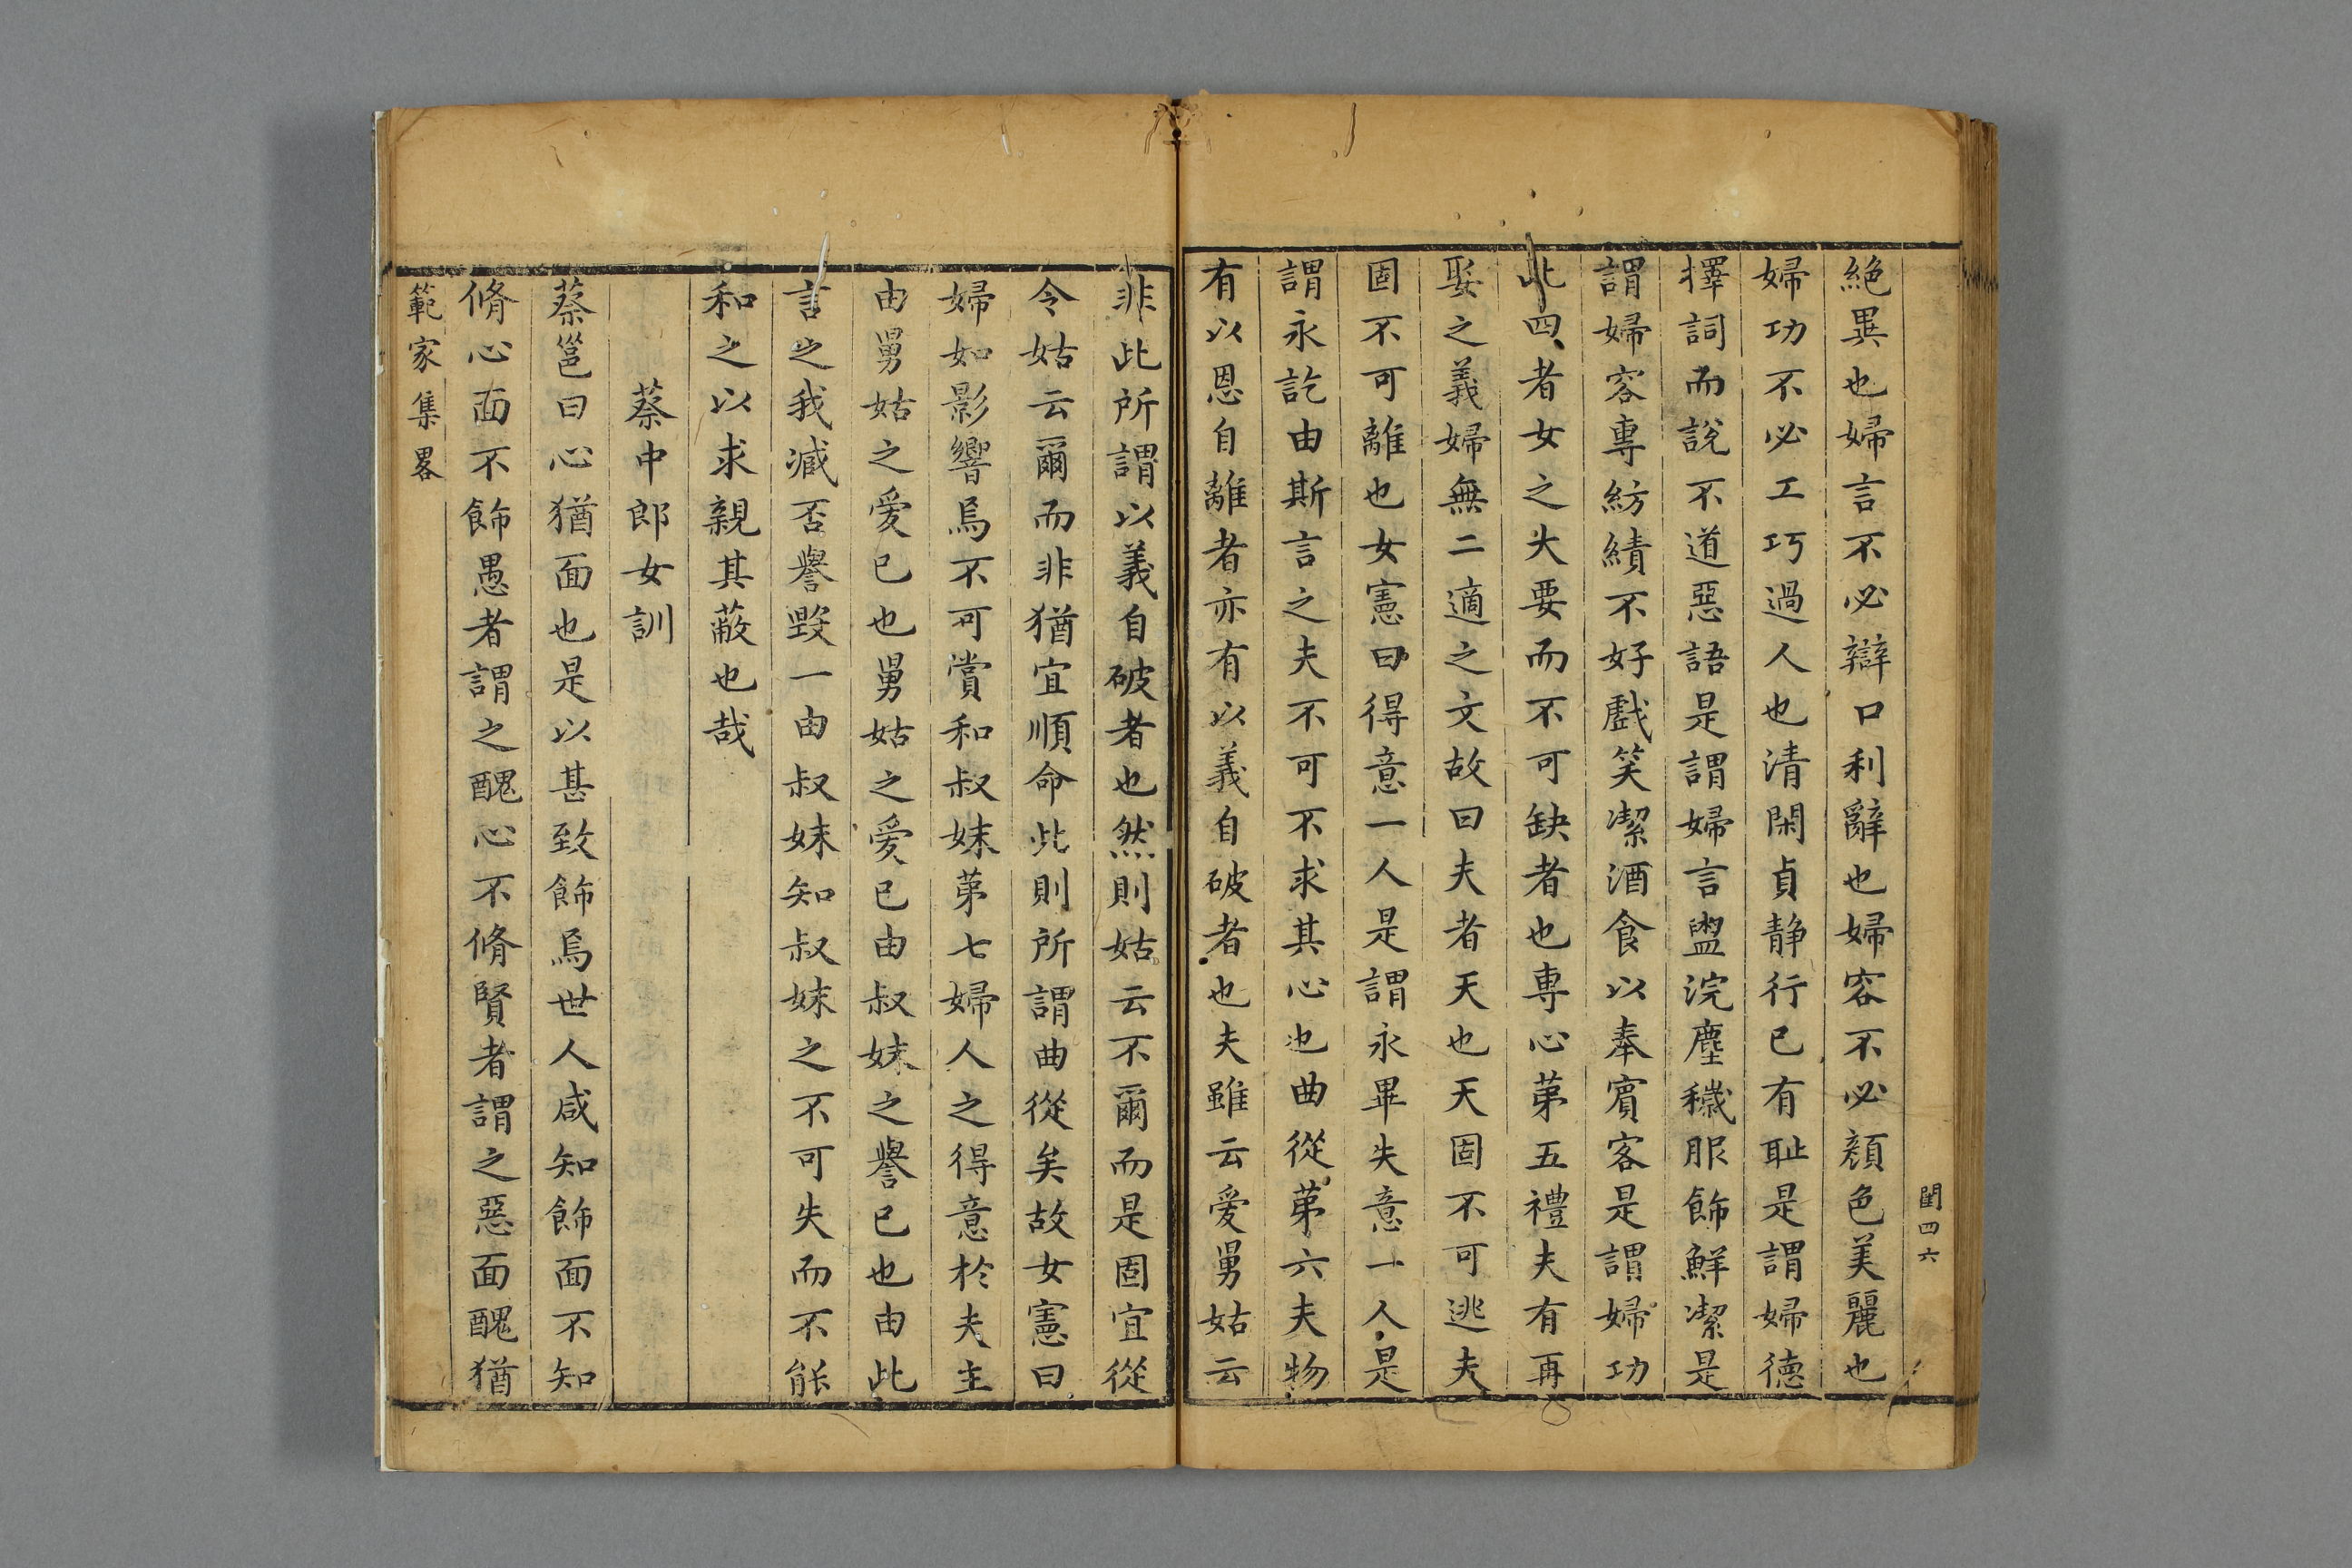 閨四六
絶異也婦言不必辯口利辭也婦容不必顔色美麗也
婦功不必工巧過人也清閑貞静行已有耻是謂婦德
擇詞而說不道惡語是謂婦言盥浣塵穢服飾鮮潔是
謂婦容專紡績不好戲笑潔酒食以奉賓客是謂婦功
此四者女之大要而不可缺者也專心第五禮夫有再
娶之義婦無二適之文故曰夫者天也天固不可逃夫
固不可離也女憲曰得意一人是謂永畢失意一人是
謂永訖由斯言之夫不可不求其心也曲從第六夫物
有以恩自離者亦有以義自破者也夫雖云爱舅姑云
非此所謂以義自破者也然則姑云不爾而是固宜從
令姑云爾而非猶宜順命此則所謂曲從矣故女憲曰
婦如影響焉不可賞和叔妹第七婦人之得意於夫主
由舅姑之愛已也舅姑之爱已由叔妹之譽已也由此
言之我臧否譽毀一由叔妹知叔妹之不可失而不能
和之以求親其蔽也哉
蔡中郎女訓
蔡邕曰心猶面也是以甚致飾焉世人咸知飾面不知
脩心面不飾愚者謂之醜心不脩賢者謂之惡面醜猶
範家集畧